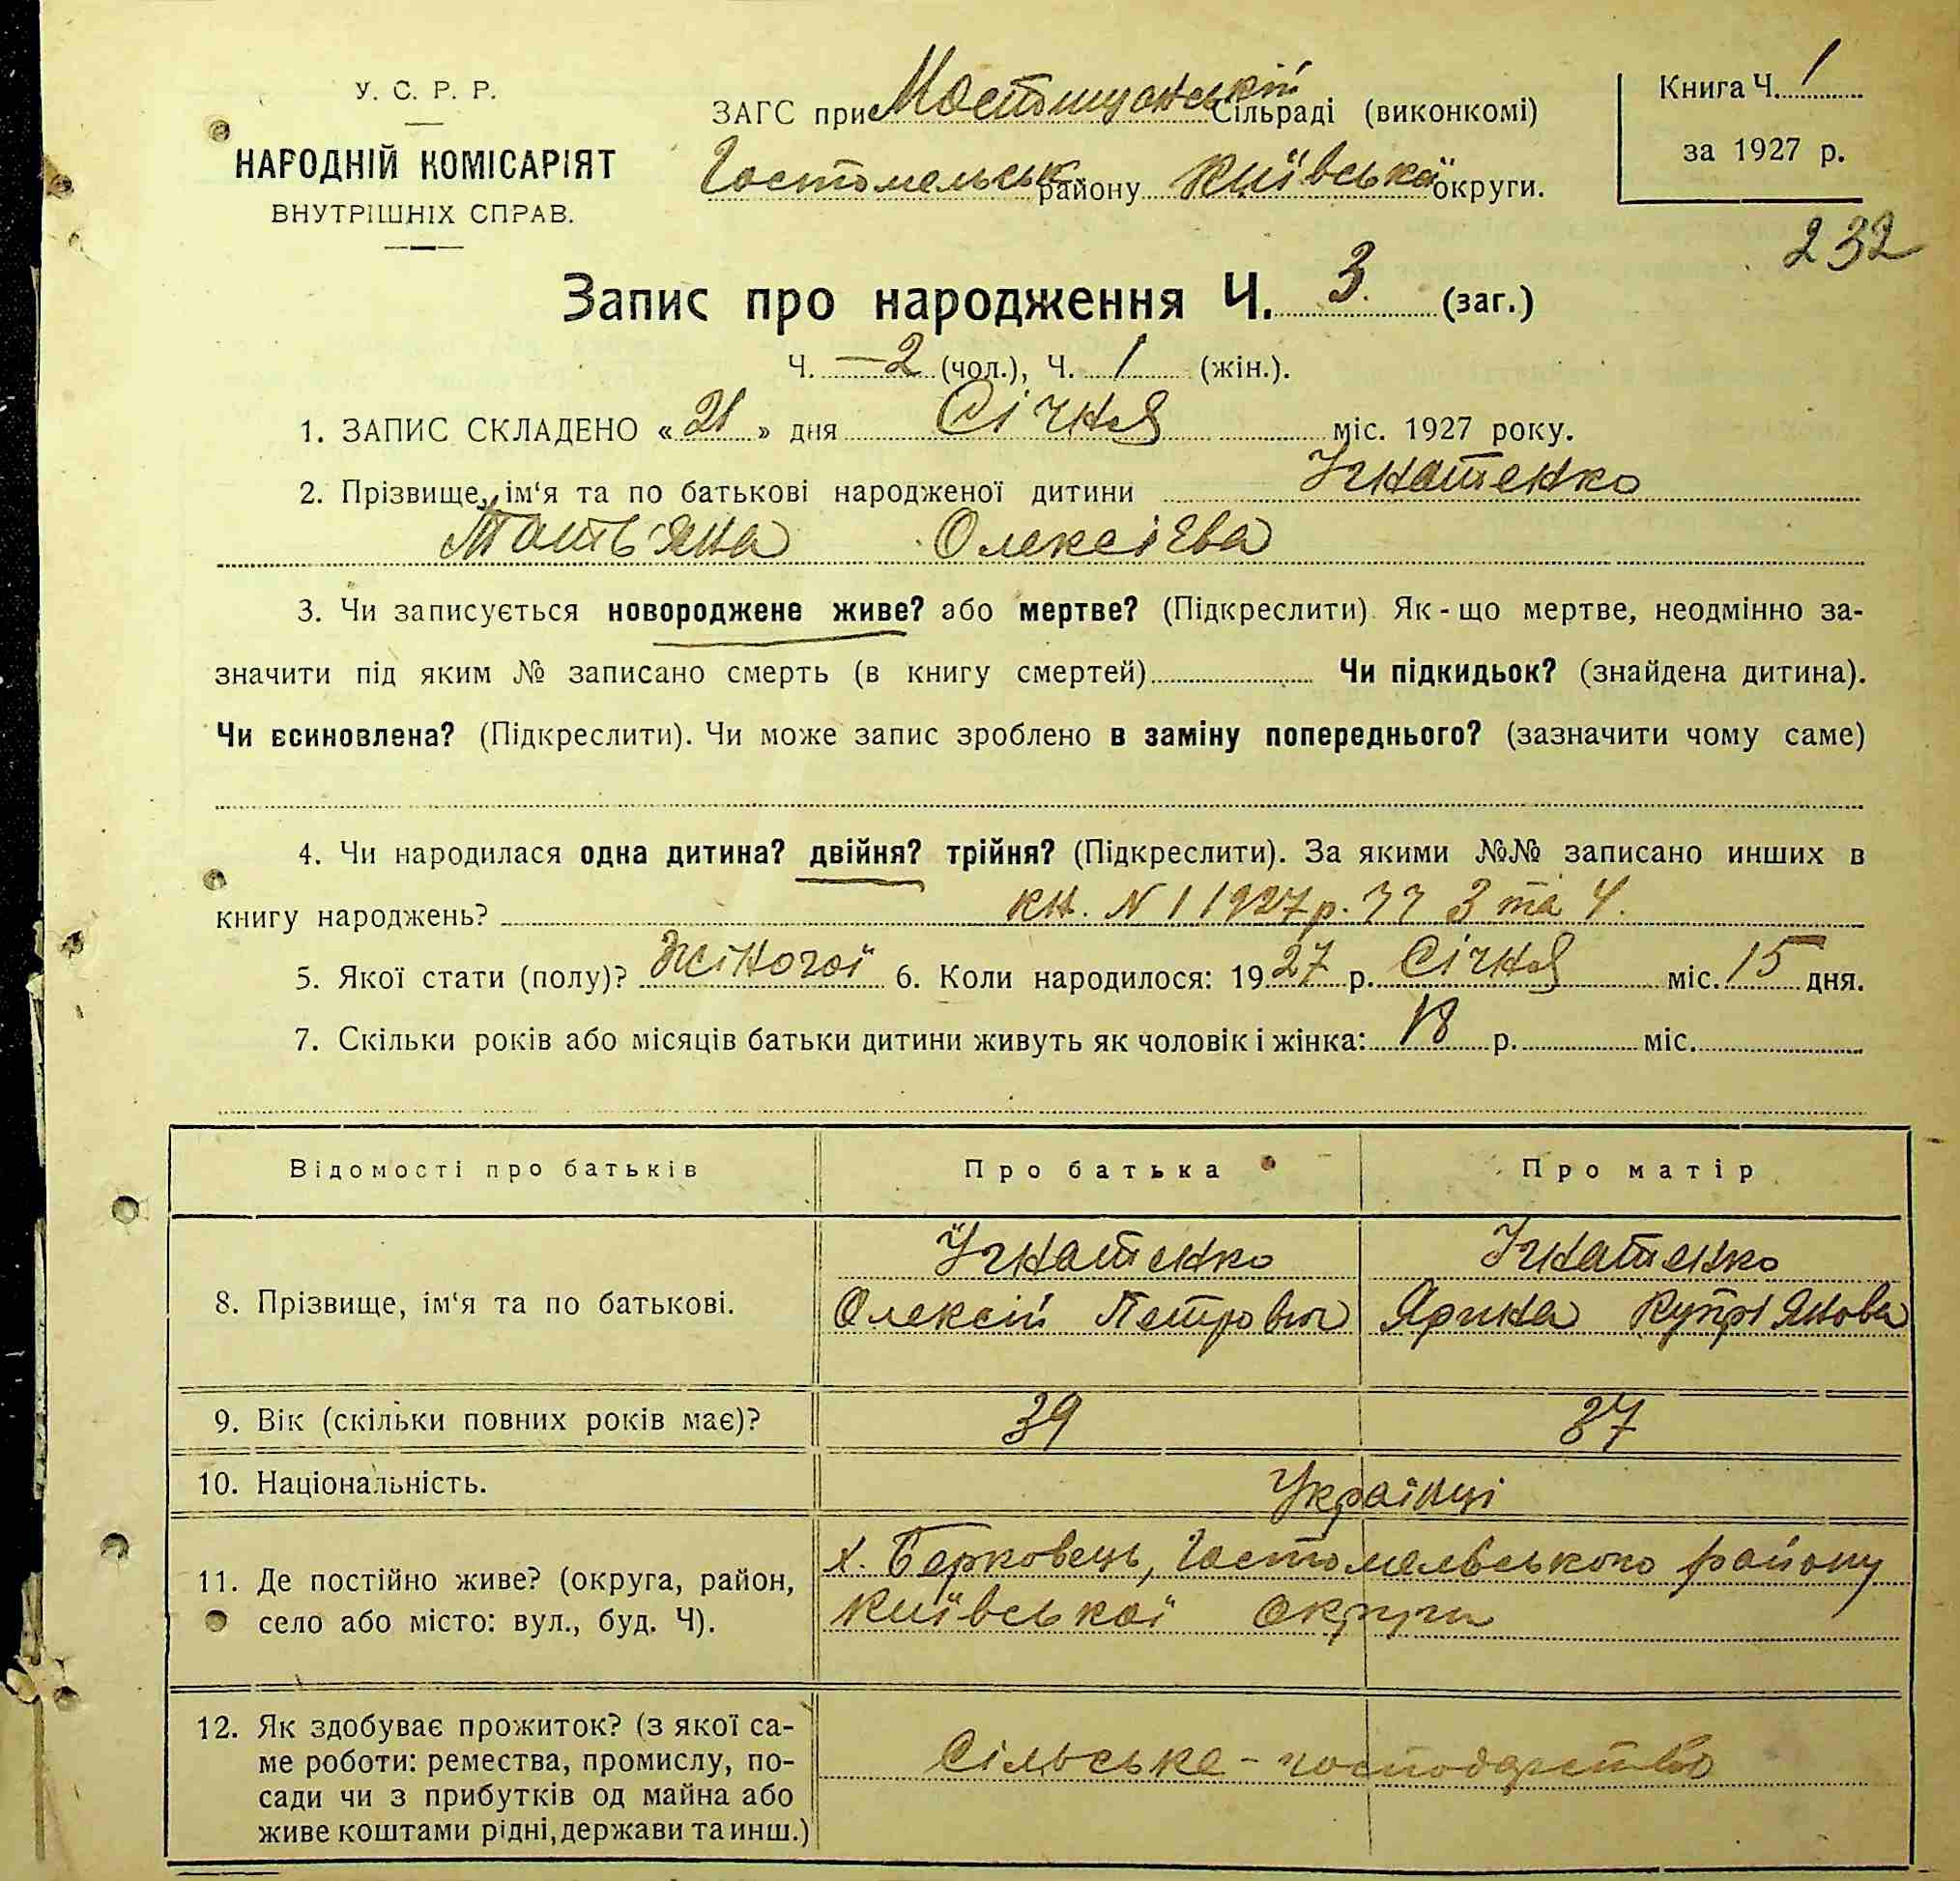 У. С. Р. Р.
НАРОДНІЙ КОМІСАРІЯТ
ВНУТРІШНІХ СПРАВ.
ЗАГС при Мостищанській Сільраді (виконкомі)
Гостомельськ району Київської округи.
Книга Ч. 1
за 1927 р.
232
Запис про народження Ч. 3 (заг.)
Ч. — 2 (чол.), Ч. 1 (жін.).
1. ЗАПИС СКЛАДЕНО « 21 » дня Січня міс. 1927 року.
2. Прізвище, ім'я та по батькові народженої дитини Ігнатенко
Тать'яна Олексієва
3. Чи записується новороджене живе? або мертве? (Підкреслити) Як-що мертве, неодмінно за-
значити під яким № записано смерть (в книгу смертей) Чи підкидьок? (знайдена дитина).
Чи всиновлена? (Підкреслити). Чи може запис зроблено в заміну попереднього? (зазначити чому саме)
4. Чи народилася одна дитина? двійня? трійня? (Підкреслити). За якими №№ записано инших в
книгу народжень? кн. N 1 1927 р. чч 3 та 4.
5. Якої стати (полу)? Жіночої 6. Коли народилося: 1927 р. Січня міс. 15 дня.
7. Скільки років або місяців батьки дитини живуть як чоловік і жінка: 18 р. міс.
Відомості про батьків Про батька Про матір
8. Прізвище, ім'я та по батькові. Ігнатенко Ігнатенко
Олексій Петрович Ярина Купріянова
9. Вік (скільки повних років має)? 39 37
10. Національність. Українці
11. Де постійно живе? (округа, район, х. Берковець, Гостомельського району
село або місто: вул., буд. Ч). Київської округи
12. Як здобуває прожиток? (з якої са-
ме роботи: ремества, промислу, по- Сільське-господарство
сади чи з прибутків од майна або
живе коштами рідні, держави та инш.)